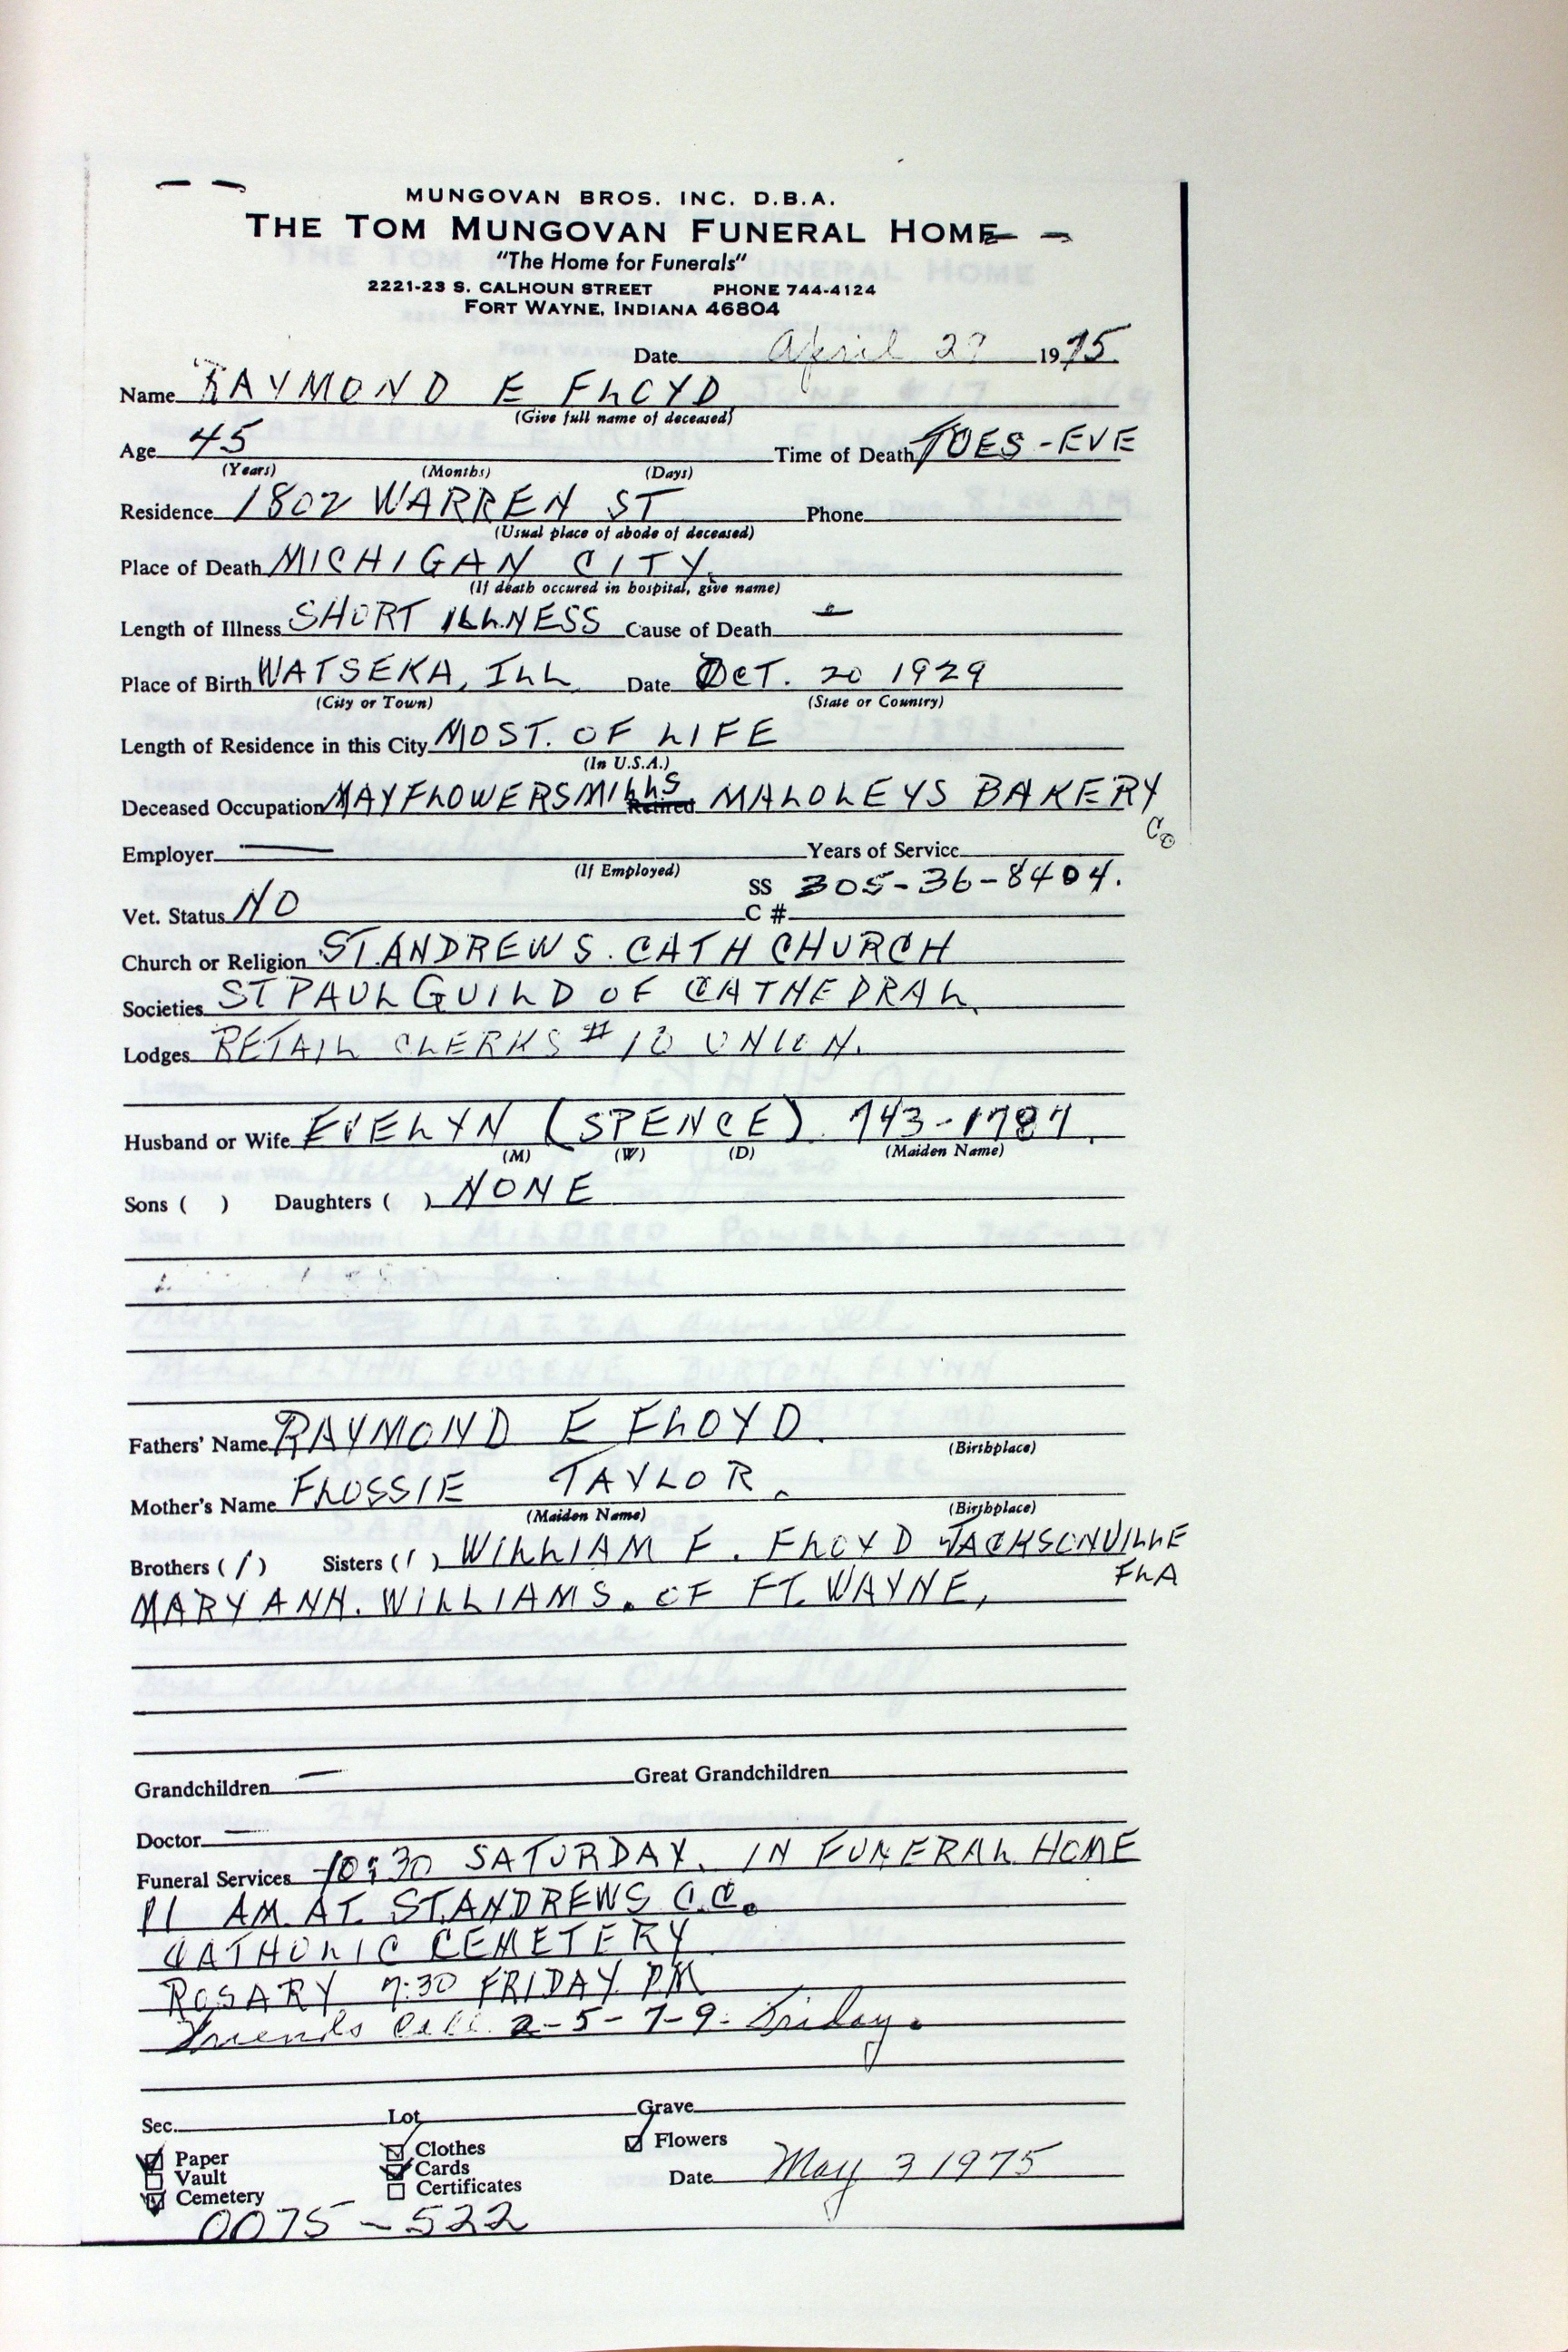 MUNGOVAN BROS. INC. D.B.A.
THE TOM MUNGOVAN FUNERAL HOME
"The Home for Funerals"
2221-23 S. CALHOUN STREET PHONE 744-4124
FORT WAYNE, INDIANA 46804
Date April 29 1975
Name RAYMOND E FLOYD
(Give full name of deceased)
Age 45 Time of Death TUES-EVE
(Years) (Months) (Days)
Residence 1802 WARREN ST Phone
(Usual place of abode of deceased)
Place of Death MICHIGAN CITY.
(If death occured in hospital, give name)
Length of Illness SHORT ILLNESS Cause of Death
Place of Birth WATSEKA, ILL Date OCT. 20 1929
(City or Town) (State or Country)
Length of Residence in this City MOST. OF LIFE
(In U.S.A.)
Deceased Occupation MAYFLOWERSMILLS Retired MALOLEYS BAKERY
Co
Employer — Years of Service
(If Employed)
SS 305-36-8404.
Vet. Status NO C #
Church or Religion ST. ANDREWS. CATH CHURCH
Societies ST PAUL GUILD OF CATHEDRAL
Lodges RETAIL CLERKS #10 UNION.
Husband or Wife EVELYN (SPENCE) 743-1787.
(M) (W) (D) (Maiden Name)
Sons ( ) Daughters ( ) NONE
Fathers' Name RAYMOND E FLOYD.
(Birthplace)
Mother's Name FLOSSIE TAYLOR.
(Maiden Name) (Birthplace)
Brothers (1) Sisters (1) WILLIAM F. FLOYD JACKSONVILLE
FLA
MARY ANN. WILLIAMS. OF FT. WAYNE,
Grandchildren — Great Grandchildren
Doctor —
Funeral Services 10:30 SATURDAY. IN FUNERAL HOME
11 AM. AT. ST. ANDREWS C.C.
CATHOLIC CEMETERY
ROSARY 7:30 FRIDAY PM
Friends Call 2-5-7-9- Friday.
Sec. Lot Grave
Paper Clothes Flowers
Vault Cards Date May 3 1975
Cemetery Certificates
0075-522